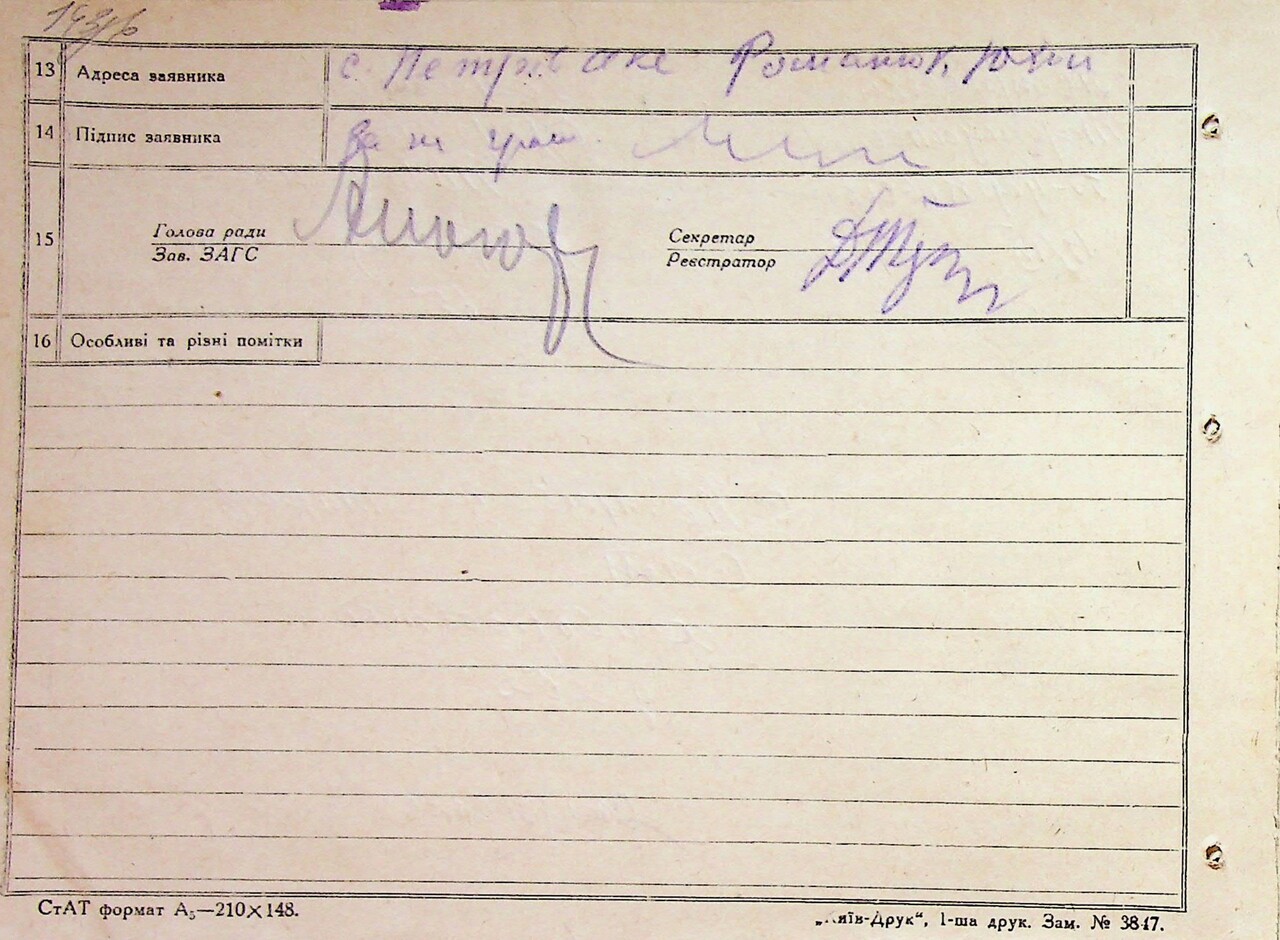 13 Адреса заявника с. Петрівське Романюк, Юхим
14 Підпис заявника за не грам.
15 Голова ради Секретар
Зав. ЗАГС Реєстратор
16 Особливі та різні помітки
СтАТ формат А₅—210×148.
„Київ-Друк“, 1-ша друк. Зам. № 3847.